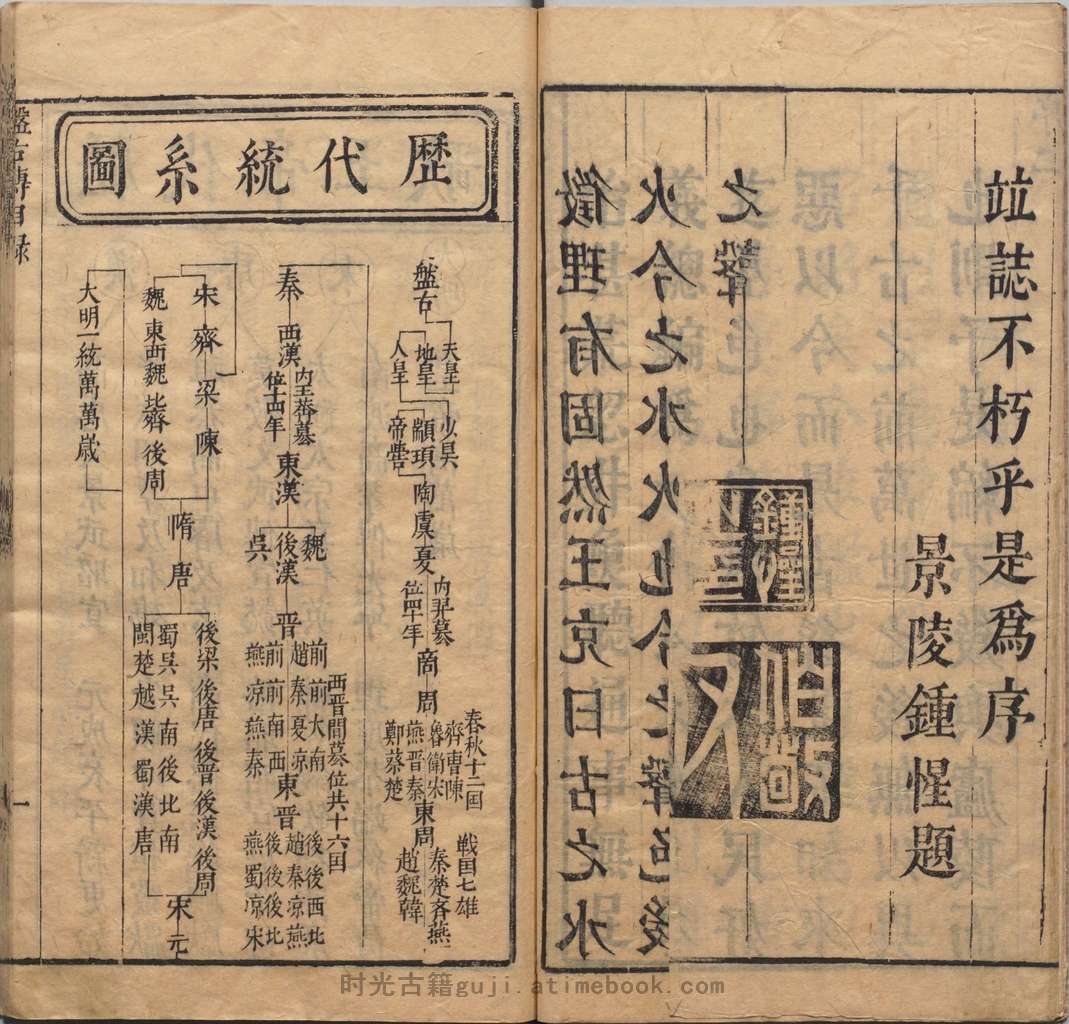 竝誌不朽乎是爲序
景陵鍾惺題
鍾惺
伯敬父
徵理有固然王克曰古之水
火今之水火也今之聲色後
之聲
歷代統系圖
盤古
天皇
地皇
人皇
少昊
顓頊
帝嚳
陶虞夏
內羿墓
位四十年
商周
春秋十二国
齊曹陳
魯衛宋
燕晉秦
鄭蔡楚
東周
戦国七雄
秦楚斉燕
趙魏韓
秦
西漢
內王莽墓
位十四年
東漢
魏
後漢
吳
晉
前前大南
趙秦夏凉
前前南西
燕凉燕秦
西晋間墓位共十六囯
東晉
後後西北
趙秦凉燕
後後後北
燕蜀凉宋
宋齊梁陳
魏東西魏北齊後周
隋唐
後梁後唐後晉後漢後周
蜀吳吳南後北南
閩楚越漢蜀漢唐
宋元
大明一統萬萬歲
盤古傳目録
一
时光古籍guji.atimebook.com